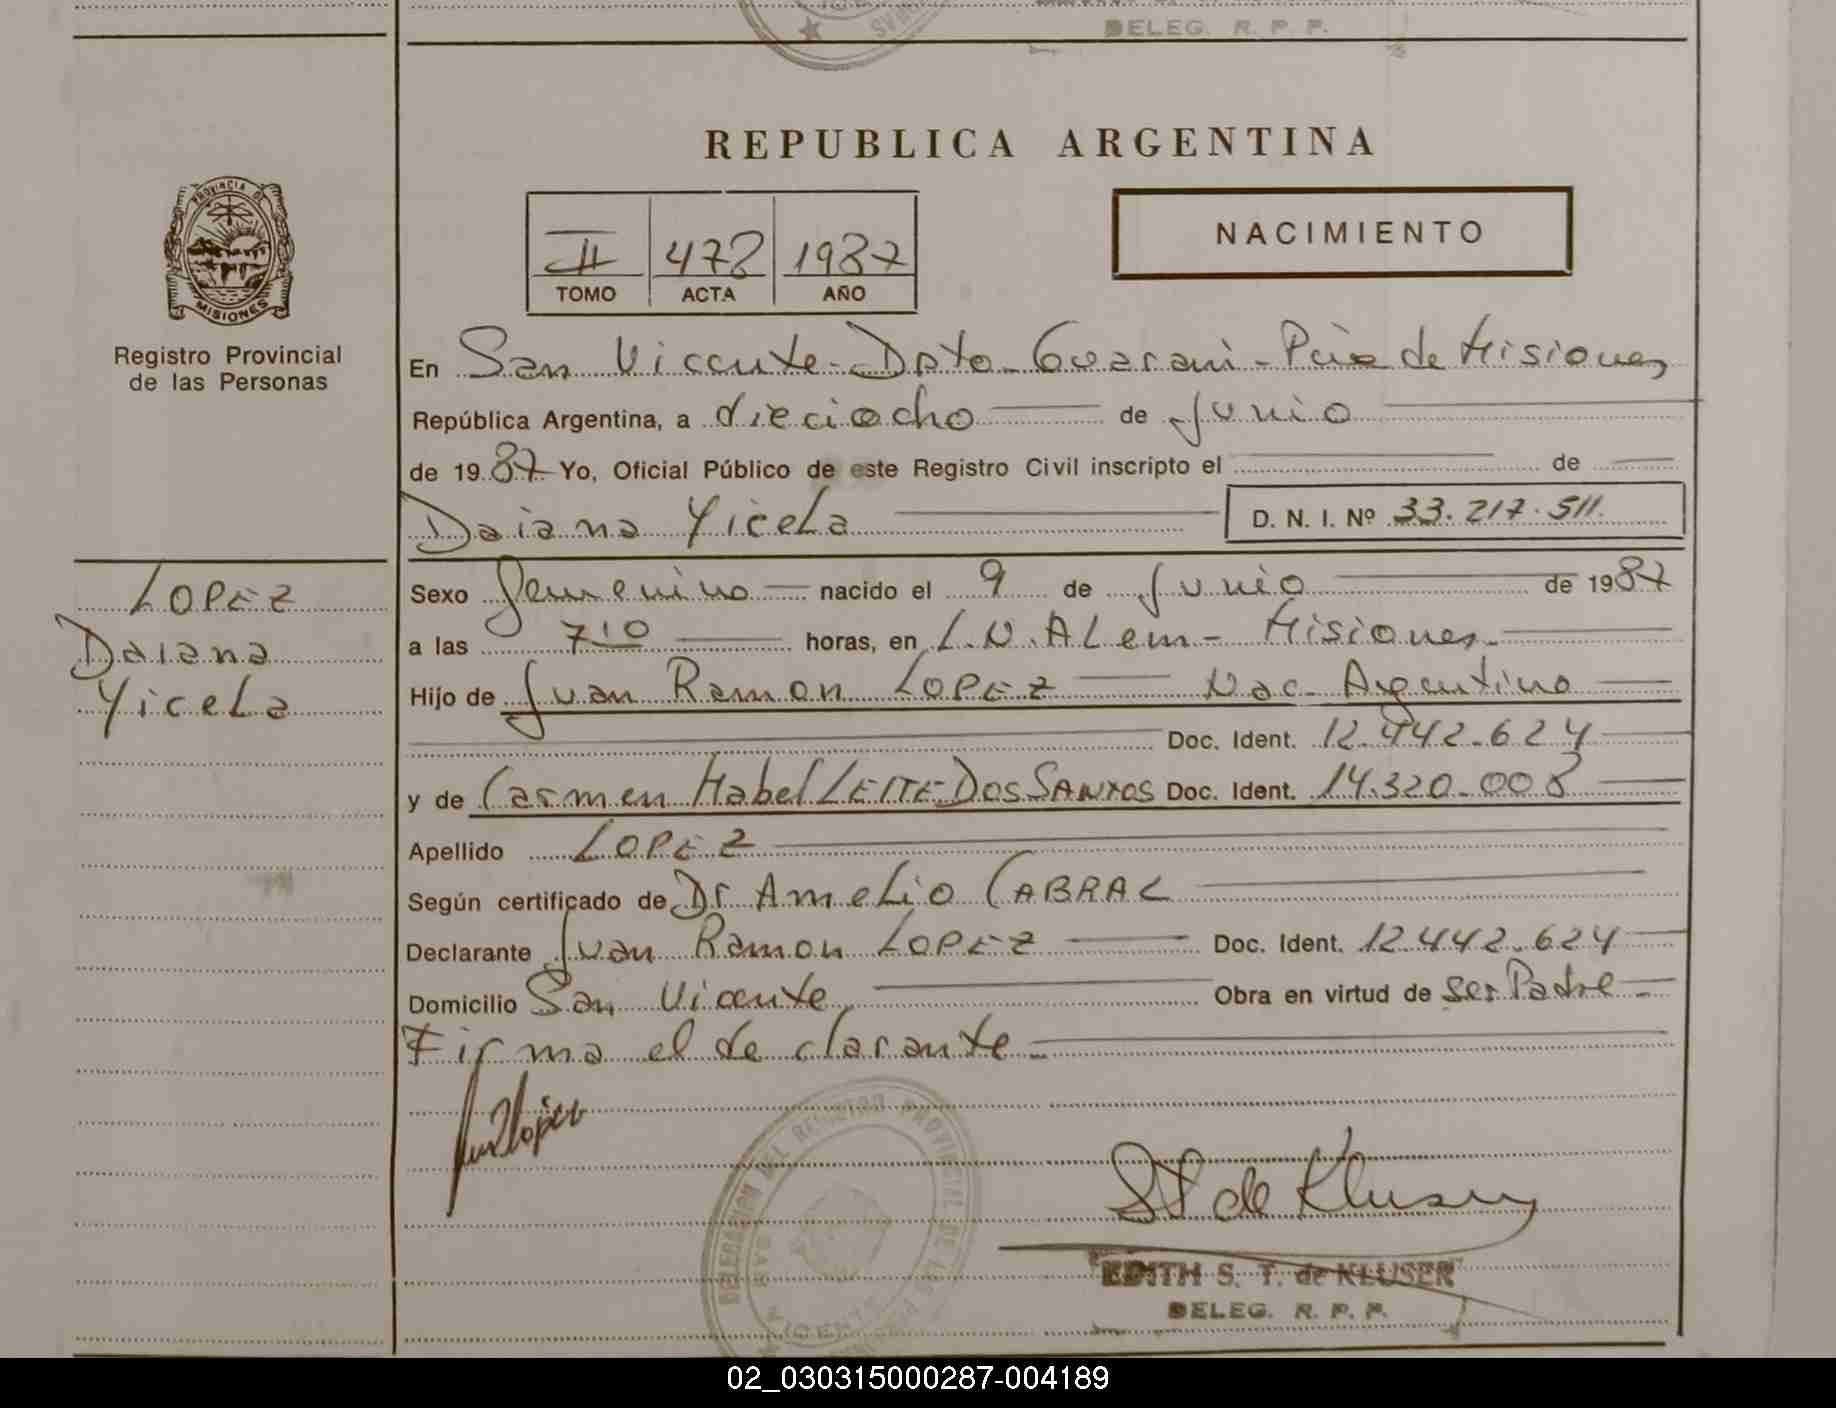 DELEG. R. P. P.
REPUBLICA ARGENTINA
PROVINCIA DE
MISIONES
Registro Provincial
de las Personas
II 478 1987
TOMO ACTA AÑO
NACIMIENTO
En San Vicente - Dpto - Guarani - Pcia de Misiones
República Argentina, a dieciocho de Junio
de 1987 Yo, Oficial Público de este Registro Civil inscripto el de
Daiana Yicela D. N. I. Nº 33.217.511.
LOPEZ
Daiana
Yicela
Sexo Femenino nacido el 9 de Junio de 1987
a las 710 horas, en L.N.ALem - Misiones -
Hijo de Juan Ramon LOPEZ Nac. Argentino
Doc. Ident. 12.442.624
y de Carmen Mabel LEITE DOS SANTOS Doc. Ident. 14.320.008
Apellido LOPEZ
Según certificado de Dr AmeLio CABRAL
Declarante Juan Ramon LOPEZ Doc. Ident. 12.442.624
Domicilio San Vicente Obra en virtud de ser Padre -
Firma el declarante -
DELEGACION DEL REGISTRO PROVINCIAL DE LAS
VICENTE
S T de Kluser
EDITH S. T. de KLUSER
DELEG. R. P. P.
02_030315000287-004189